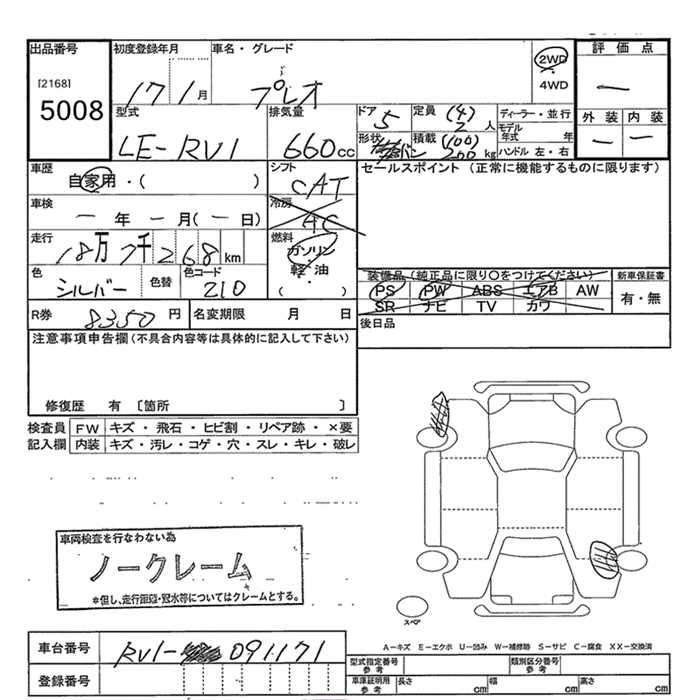 出品番号
[2168]
5008
初度登録年月
17 1月
車名・グレード
プレオ
2WD
4WD
評価点
一
外装 内装
一 一
型式
LE-RV1
排気量
660cc
ドア
5
形状
バン
定員 (4)
2人
積載 (100)
200kg
ディーラー・並行
モデル年式 年
ハンドル 左・右
車歴
自家用・( )
シフト
CAT
セールスポイント (正常に機能するものに限ります)
車検
一年 一月(一日)
冷房
AC
走行
18万7千268km
燃料
ガソリン
軽・油
( )
色
シルバー
色替
色コード
210
装備品(純正品に限り○をつけてください)
PS PW ABS エアB AW
SR ナビ TV カワ
新車保証書
有・無
R券 8350円
名変期限 月 日
後日品
注意事項申告欄(不具合内容等は具体的に記入して下さい)
修復歴 有 [箇所 ]
検査員
記入欄
FW キズ・飛石・ヒビ割・リペア跡・×要
内装 キズ・汚レ・コゲ・穴・スレ・キレ・破レ
車両検査を行なわない為
ノークレーム
*但し、走行距離・冠水等についてはクレームとする。
スペア
A−キズ E−エクボ U−凹み W−補修跡 S−サビ C−腐食 XX−交換済
車台番号
RV1- 091171
登録番号
型式指定番号
参考
類別区分番号
参考
車庫証明用
参考
長さ cm
幅 cm
高さ cm